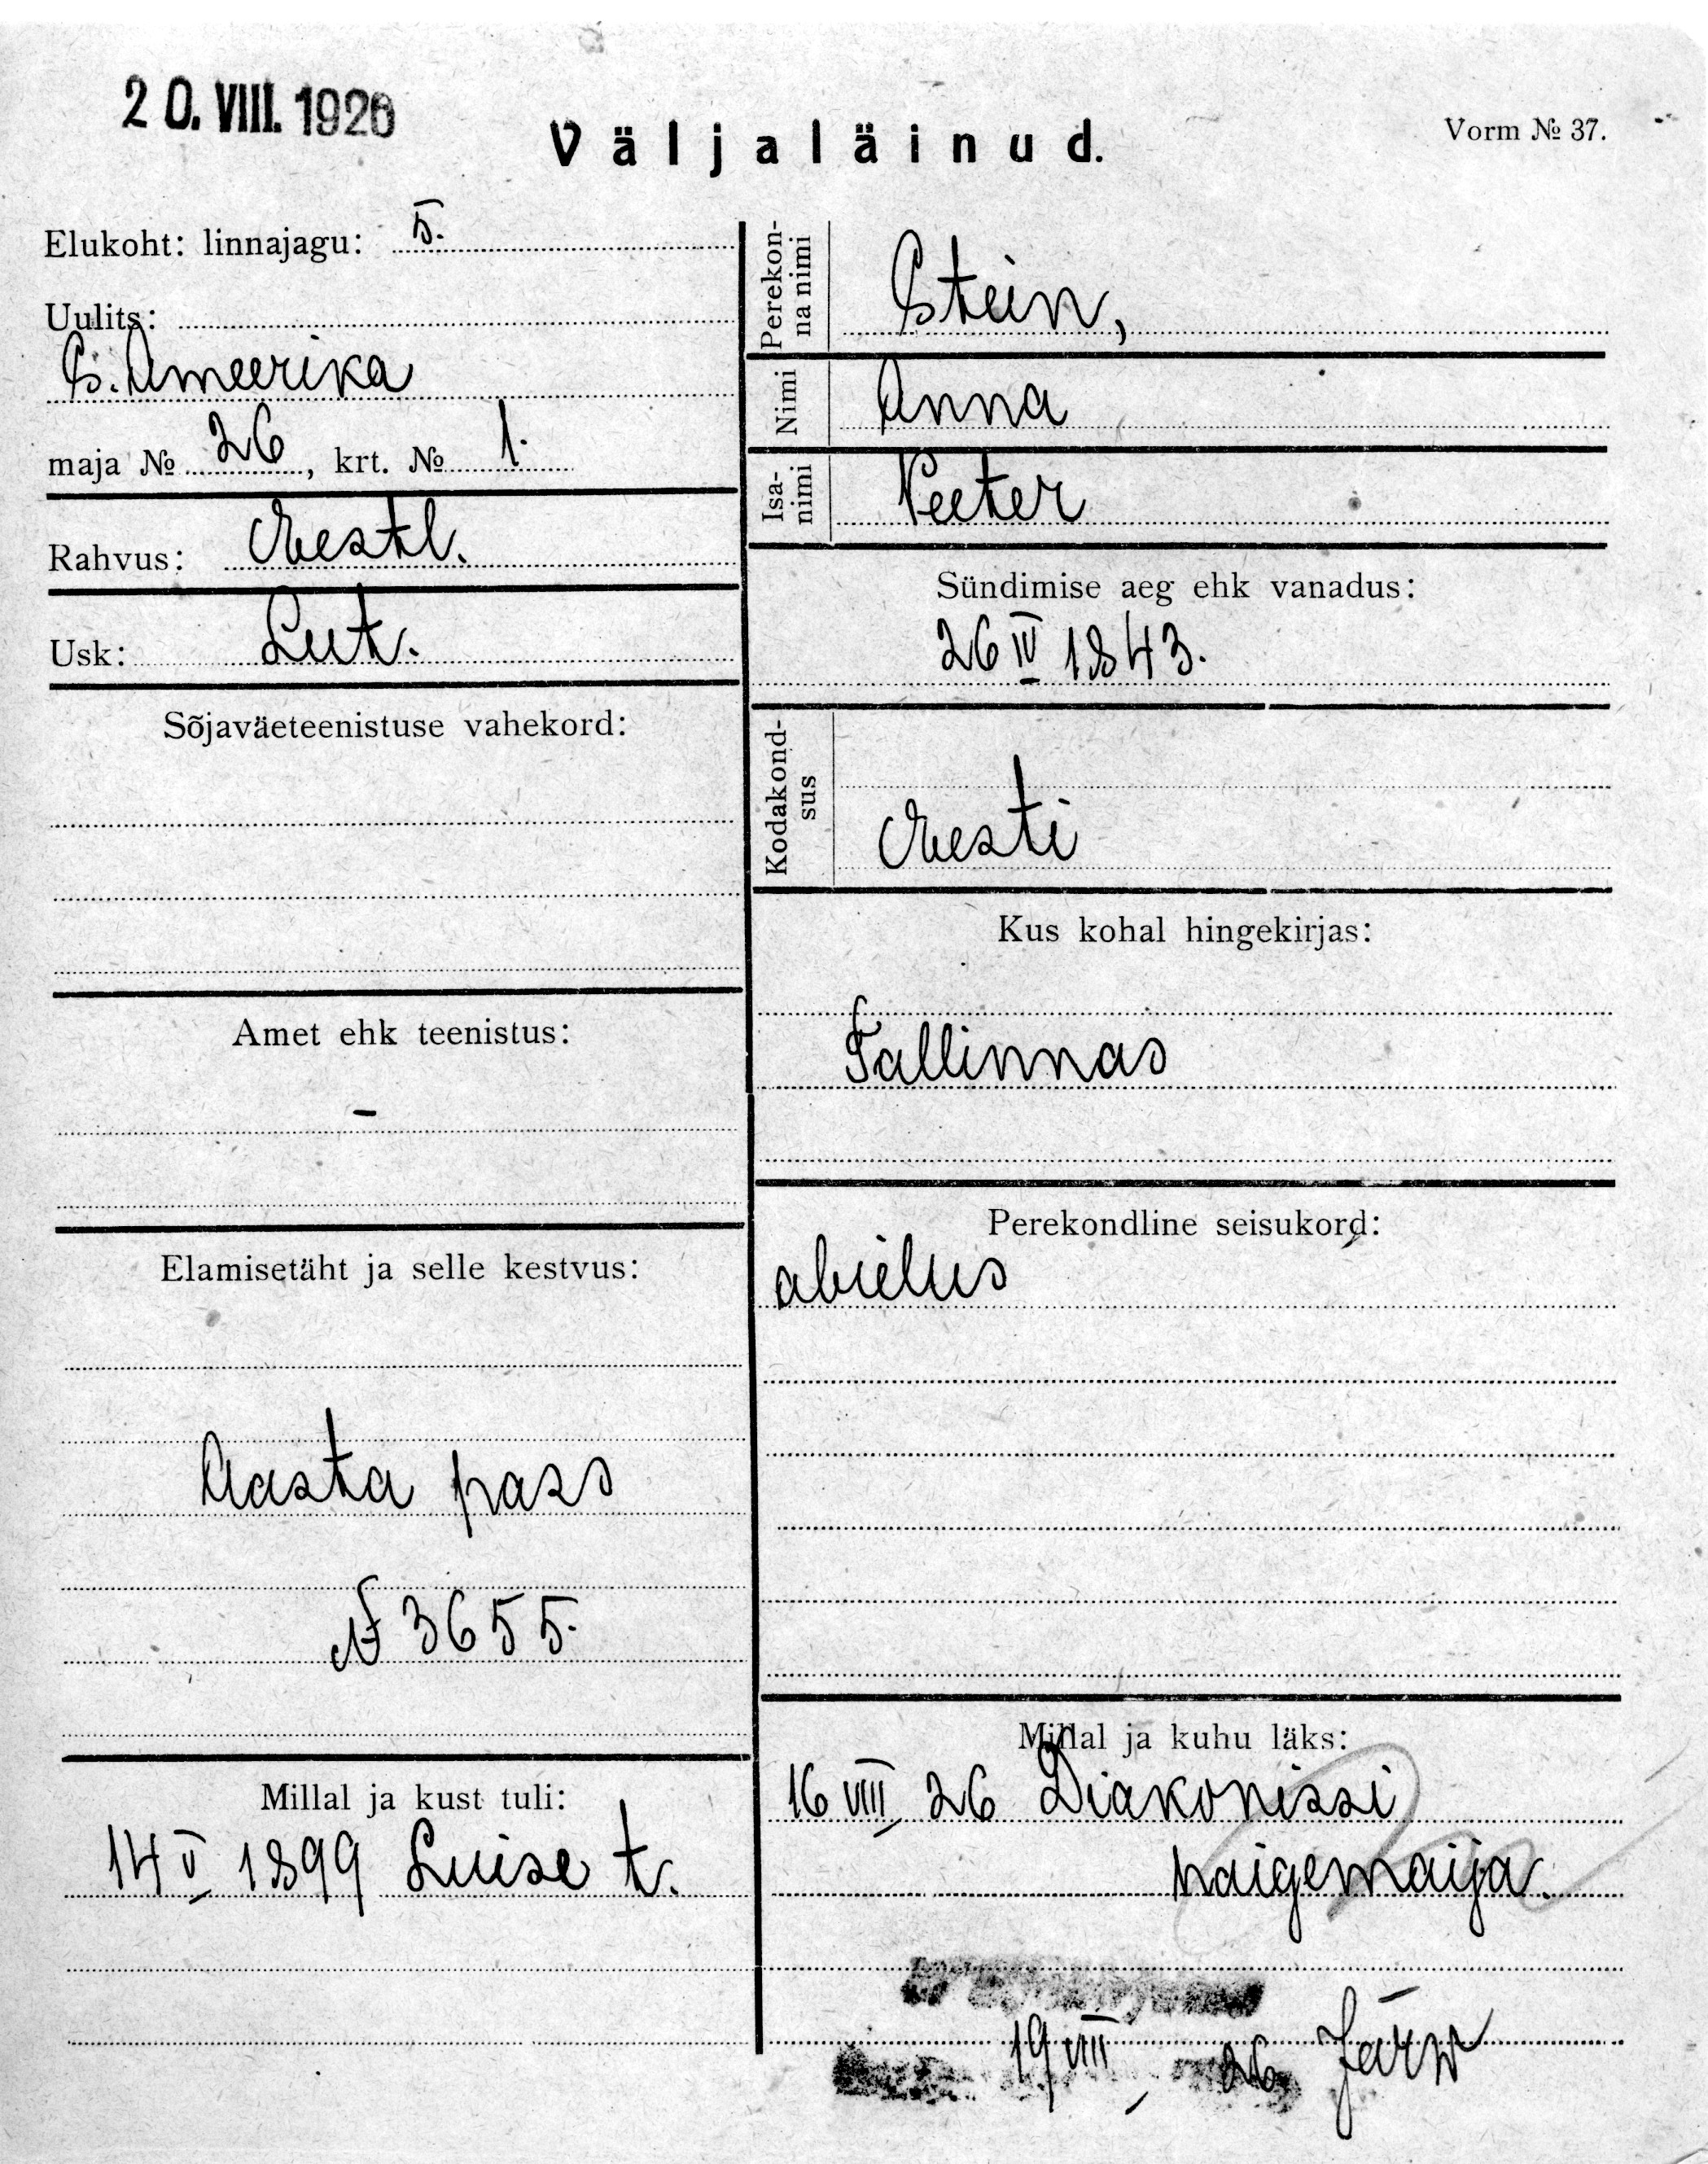 20. VIII. 1926
Väljaläinud.
Vorm № 37.
Elukoht: linnajagu: 5.
Uulits:
S. Ameerika
maja № 26, krt. № 1.
Rahvus: Eestl.
Usk: Lut.
Sõjaväeteenistuse vahekord:
Amet ehk teenistus:
-
Elamisetäht ja selle kestvus:
Aasta pass
№ 3655.
Millal ja kust tuli:
14 V 1899 Luise t.
Perekon-
na nimi
Stein,
Nimi
Anna
Isa-
nimi
Peeter
Sündimise aeg ehk vanadus:
26 IV 1843.
Kodakond-
sus
Eesti
Kus kohal hingekirjas:
Tallinnas
Perekondline seisukord:
abielus
Millal ja kuhu läks:
16 VIII 26 Diakonissi
haigemaija.
19 VIII 26 Järw